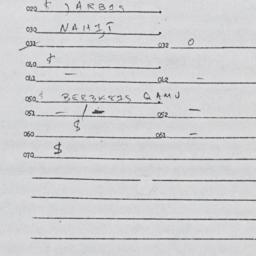 020 $ JARBIS
030 NAHIT
031 032 0
040 $
041 — 042 —
050 $ BERBKRIS QAMU
051 — / — 052 —
060 $ 061 —
070 $